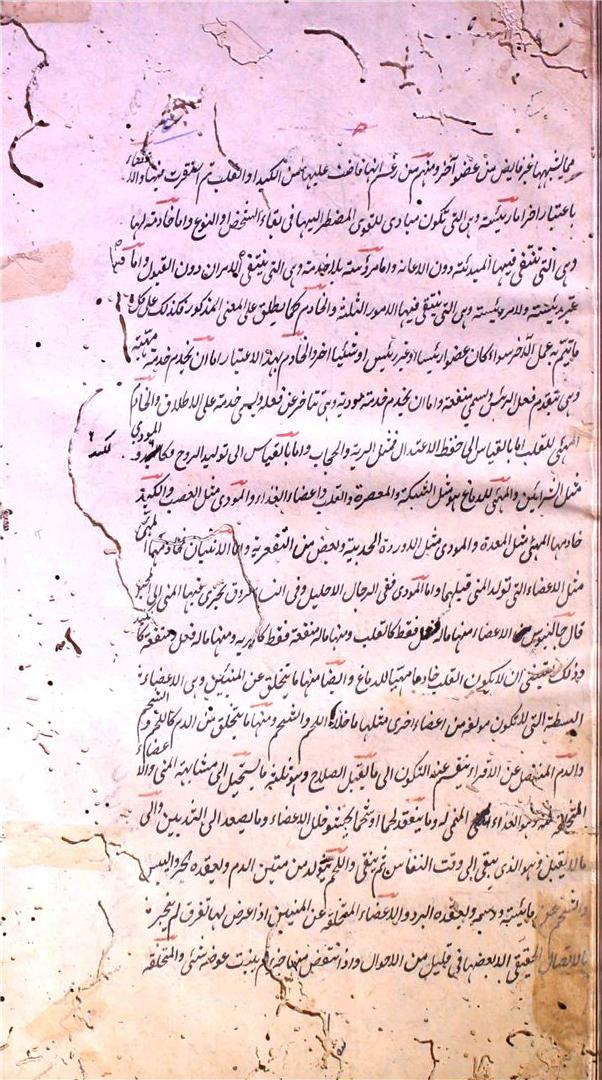 مما يشبهها غير فايض من عضو آخر ومنهم من زعم انها فاضت عليها من الكبد او القلب ثم استقرت فيها والاعضاء
باعتبار اخر اما رئيسة وهى التى تكون مبادى للقوى المضطر اليها فى بقاء الشخص او النوع واما خادمة لها
وهى التى تنتفى فيها المبدئية دون الاعانة واما مرؤسة بلا خدمة وهى التى ينتفى الامران دون القبول واما
غير رئيسة ولا مرؤسة وهى التى ينتفى فيها الامور الثلثة والخادم كما يطلق على المعنى المذكور فكذلك على كل
ما يتم به عمل الآخر سواء كان عضوا رئيسا او غير رئيس او شيئا اخر والخادم بهذا الاعتبار اما ان يخدم خدمة مهيئة
وهى تتقدم فعل الرئيس ويسمى منفعة واما ان يخدم خدمة مودية وهى تتاخر عن فعله ويسمى خدمة على الاطلاق والخادم
المهيئ للقلب اما بالقياس الى حفظ الاعتدال فمثل الرية والحجاب واما بالقياس الى توليد الروح فكالكبد والمودى
مثل الشرائين والمهيئ للدماغ هو مثل الشبكة والمعصرة والقلب واعضاء الغذاء والمودى مثل العصب والكبد
خادمها المهيئ مثل المعدة والمودى مثل الاوردة الحدبية وبعض من التقعرية واما الانثيان فخادمها المهيئ
مثل الاعضاء التى تولد المنى قبلها واما المودى ففى الرجال الاحليل وفى النساء عروق يجرى فيها المنى الى
قال جالينوس الاعضاء منها ما له فعل فقط كالقلب ومنها ما له منفعة فقط كالرية ومنها ما له فعل ومنفعة كالكبد
وذلك يقتضى ان لا يكون القلب خادما مهيئا للدماغ وايضا منها ما يتخلق عن المنيين وهى الاعضاء
البسيطة التى لا تكون مولفة من اعضاء اخرى مثلها ما خلا اللحم والشحم ومنها ما يتخلق من الدم كاللحم والشحم
والدم المنفصل عن الاقراء ينقسم عند التكون الى ما يقبل الصلاح وهو ثلثة ما يستحيل الى مشابهة المنى والاعضاء
المتخلقة منه وهو الغذاء المنمى له وما ينعقد لحما او شحما يحشو خلل الاعضاء وما يصعد الى الثديين والى
ما لا يقبل وهو الذى يبقى الى وقت النفاس ثم ينقى واللحم يتولد من متين الدم ويعقده الحر واليبس
والشحم عن مائيته ودسمه ويعقده البرد والاعضاء المتخلقة عن المنيين اذا عرض لها تفرق لم ينجبر
بالاتصال الحقيقى الا بعضها فى قليل من الاحوال واذا انتقص منها جزء لم ينبت عوضه شئ والمتخلقة